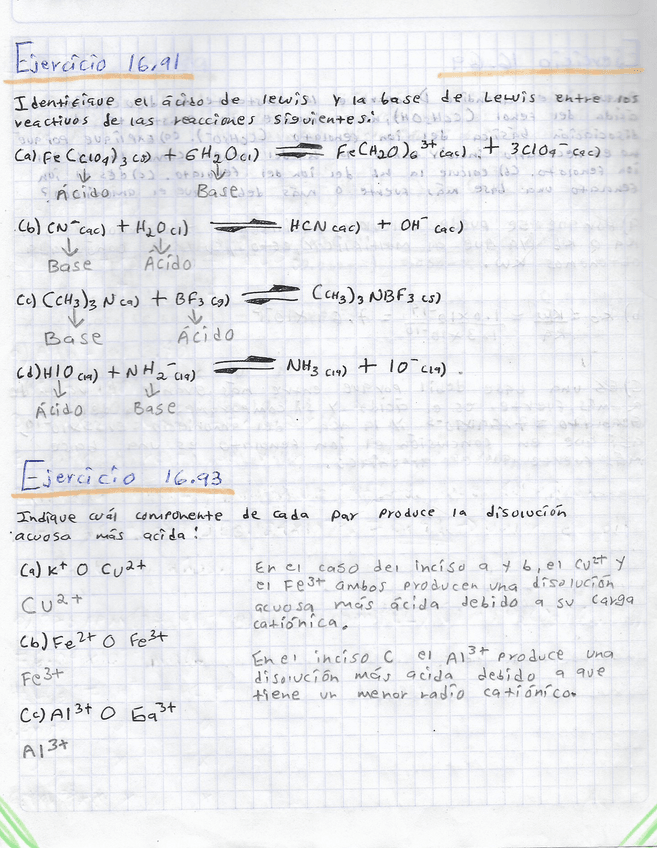 Ejercicio 16.91
Identifique el ácido de lewis y la base de Lewis entre los
reactivos de las reacciones siguientes:
(a) Fe(ClO4)3 (s) + 6H2O(l) ⇌ Fe(H2O)6 3+ (ac) + 3ClO4-(ac)
Ácido Base
(b) CN-(ac) + H2O(l) ⇌ HCN(ac) + OH-(ac)
Base Ácido
(c) (CH3)3N(g) + BF3(g) ⇌ (CH3)3NBF3(s)
Base Ácido
(d) HIO(lq) + NH2-(lq) ⇌ NH3(lq) + IO-(lq).
Ácido Base
Ejercicio 16.93
Indique cuál componente de cada par produce la disolución
acuosa más acida:
(a) K+ O Cu2+
Cu2+
(b) Fe2+ O Fe3+
Fe3+
(c) Al3+ O Ga3+
Al3+
En el caso del inciso a y b, el Cu2+ y
el Fe3+ ambos producen una disolución
acuosa más ácida debido a su carga
catiónica.
En el inciso C el Al3+ produce una
disolución más acida debido a que
tiene un menor radio catiónico.